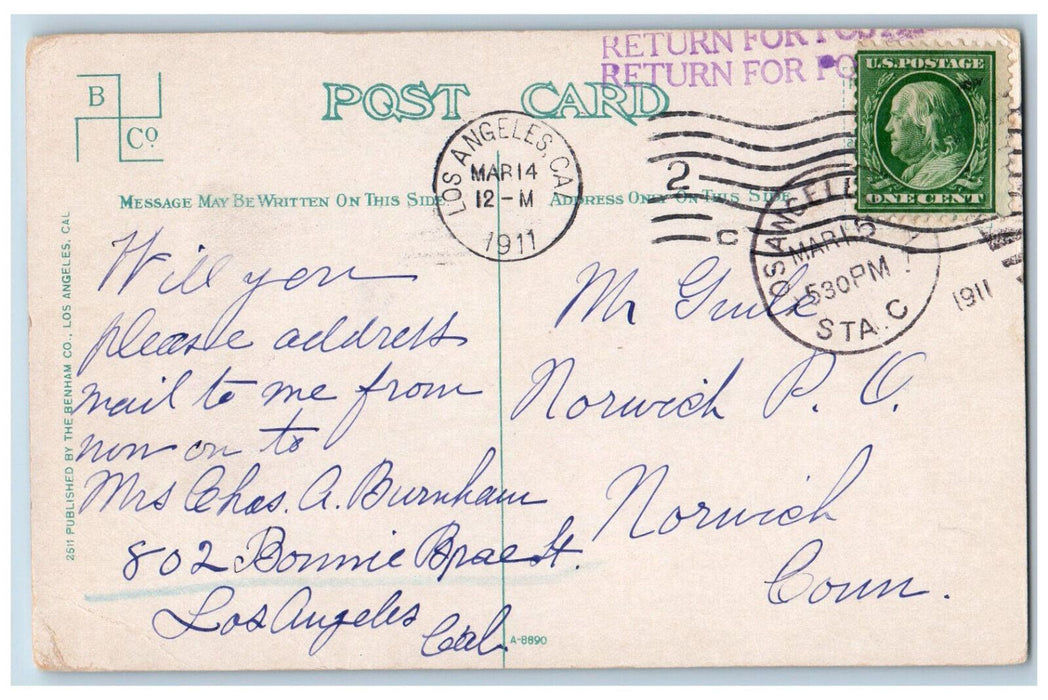 RETURN FOR POSTA
RETURN FOR PO
B
Co
POST CARD
U.S. POSTAGE
ONE CENT
LOS ANGELES, CA
MAR 14
12 - M
1911
2
C
MESSAGE MAY BE WRITTEN ON THIS SIDE
ADDRESS ONLY ON THIS SIDE
LOS ANGELE
MAR 15
530 PM
1911
STA. C
Will you
please address
mail to me from
now on to
Mrs Chas. A. Burnham
802 Bonnie Brae St.
Los Angeles
Cal.
Mr Guile
Norwich P. O.
Norwich
Conn.
2511 PUBLISHED BY THE BENHAM CO., LOS ANGELES, CAL
A-8690